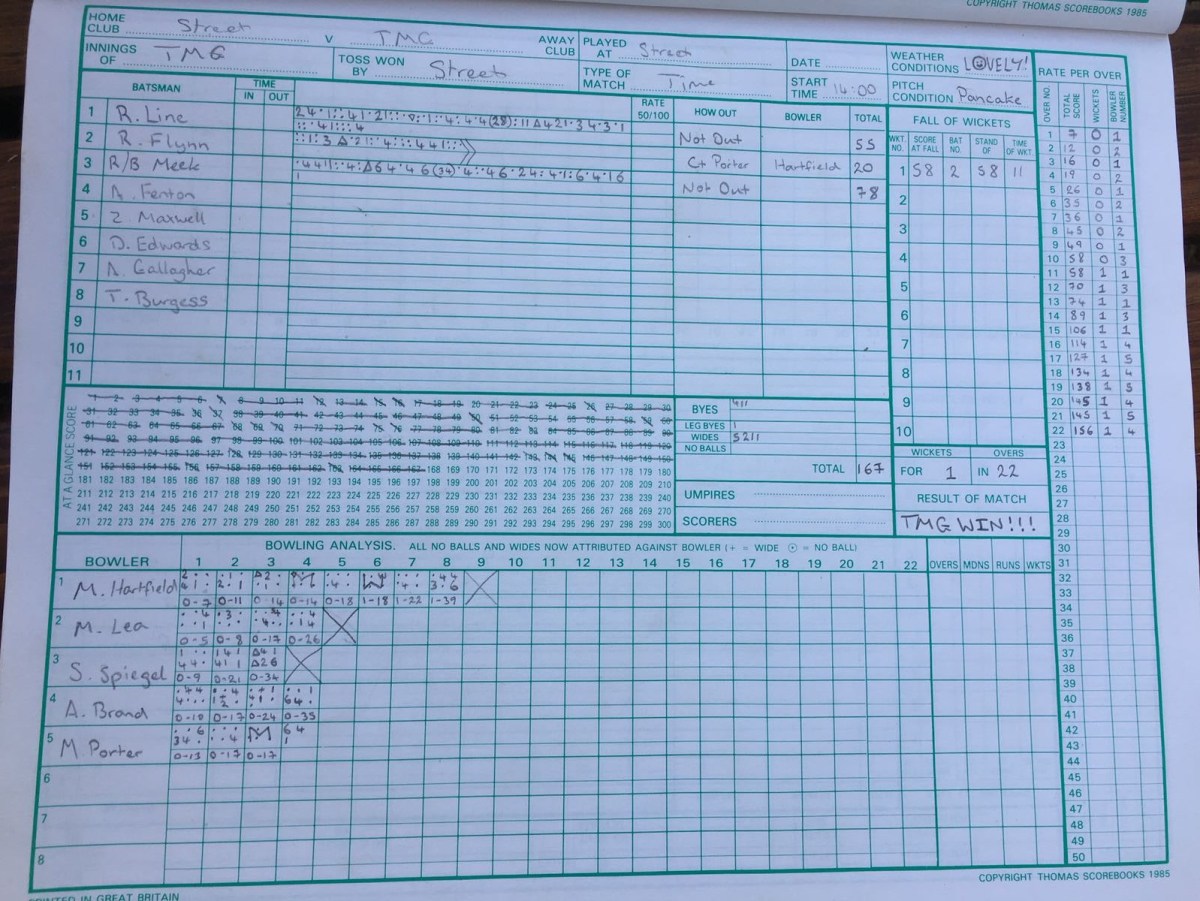 COPYRIGHT THOMAS SCOREBOOKS 1985
HOME CLUB Street V TMG AWAY CLUB PLAYED AT Street DATE WEATHER CONDITIONS LOVELY! RATE PER OVER
INNINGS OF TMG TOSS WON BY Street TYPE OF MATCH Time START TIME 14:00 PITCH CONDITION Pancake
BATSMAN TIME IN OUT RATE 50/100 HOW OUT BOWLER TOTAL FALL OF WICKETS OVER NO. TOTAL SCORE WICKETS BOWLER NUMBER
WKT. NO. SCORE AT FALL BAT NO. STAND OF TIME OF WKT.
1 R. Line Not Out 55
2 R. Flynn Ct Porter Hartfield 20
3 R/B Meek Not Out 78
4 A. Fenton
5 Z. Maxwell
6 D. Edwards
7 A. Gallagher
8 T. Burgess
9
10
11
1 58 2 58 11
2
3
4
5
6
7
8
9
10
1 7 0 1
2 12 0 2
3 16 0 1
4 19 0 2
5 26 0 1
6 35 0 2
7 36 0 1
8 45 0 2
9 49 0 1
10 58 0 3
11 58 1 1
12 70 1 3
13 74 1 1
14 89 1 3
15 106 1 1
16 114 1 4
17 127 1 5
18 134 1 4
19 138 1 5
20 145 1 4
21 145 1 5
22 156 1 4
23
24
25
26
27
28
29
30
31
32
33
34
35
36
37
38
39
40
41
42
43
44
45
46
47
48
49
50
AT A GLANCE SCORE
1 2 3 4 5 6 7 8 9 10 11 12 13 14 15 16 17 18 19 20 21 22 23 24 25 26 27 28 29 30
31 32 33 34 35 36 37 38 39 40 41 42 43 44 45 46 47 48 49 50 51 52 53 54 55 56 57 58 59 60
61 62 63 64 65 66 67 68 69 70 71 72 73 74 75 76 77 78 79 80 81 82 83 84 85 86 87 88 89 90
91 92 93 94 95 96 97 98 99 100 101 102 103 104 105 106 107 108 109 110 111 112 113 114 115 116 117 118 119 120
121 122 123 124 125 126 127 128 129 130 131 132 133 134 135 136 137 138 139 140 141 142 143 144 145 146 147 148 149 150
151 152 153 154 155 156 157 158 159 160 161 162 163 164 165 166 167 168 169 170 171 172 173 174 175 176 177 178 179 180
181 182 183 184 185 186 187 188 189 190 191 192 193 194 195 196 197 198 199 200 201 202 203 204 205 206 207 208 209 210
211 212 213 214 215 216 217 218 219 220 221 222 223 224 225 226 227 228 229 230 231 232 233 234 235 236 237 238 239 240
241 242 243 244 245 246 247 248 249 250 251 252 253 254 255 256 257 258 259 260 261 262 263 264 265 266 267 268 269 270
271 272 273 274 275 276 277 278 279 280 281 282 283 284 285 286 287 288 289 290 291 292 293 294 295 296 297 298 299 300
BYES 411
LEG BYES 1
WIDES 5211
NO BALLS
TOTAL 167
WICKETS OVERS
FOR 1 IN 22
UMPIRES
SCORERS
RESULT OF MATCH
TMG WIN!!!
BOWLING ANALYSIS. ALL NO BALLS AND WIDES NOW ATTRIBUTED AGAINST BOWLER (+ = WIDE ⊙ = NO BALL)
BOWLER 1 2 3 4 5 6 7 8 9 10 11 12 13 14 15 16 17 18 19 20 21 22 OVERS MDNS RUNS WKTS
1 M. Hartfield 0-7 0-11 0-14 0-14 0-18 1-18 1-22 1-39
2 M. Lea 0-5 0-8 0-17 0-26
3 S. Spiegel 0-9 0-21 0-34
4 A. Brand 0-10 0-17 0-24 0-35
5 M. Porter 0-13 0-17 0-17
6
7
8
COPYRIGHT THOMAS SCOREBOOKS 1985
PRINTED IN GREAT BRITAIN